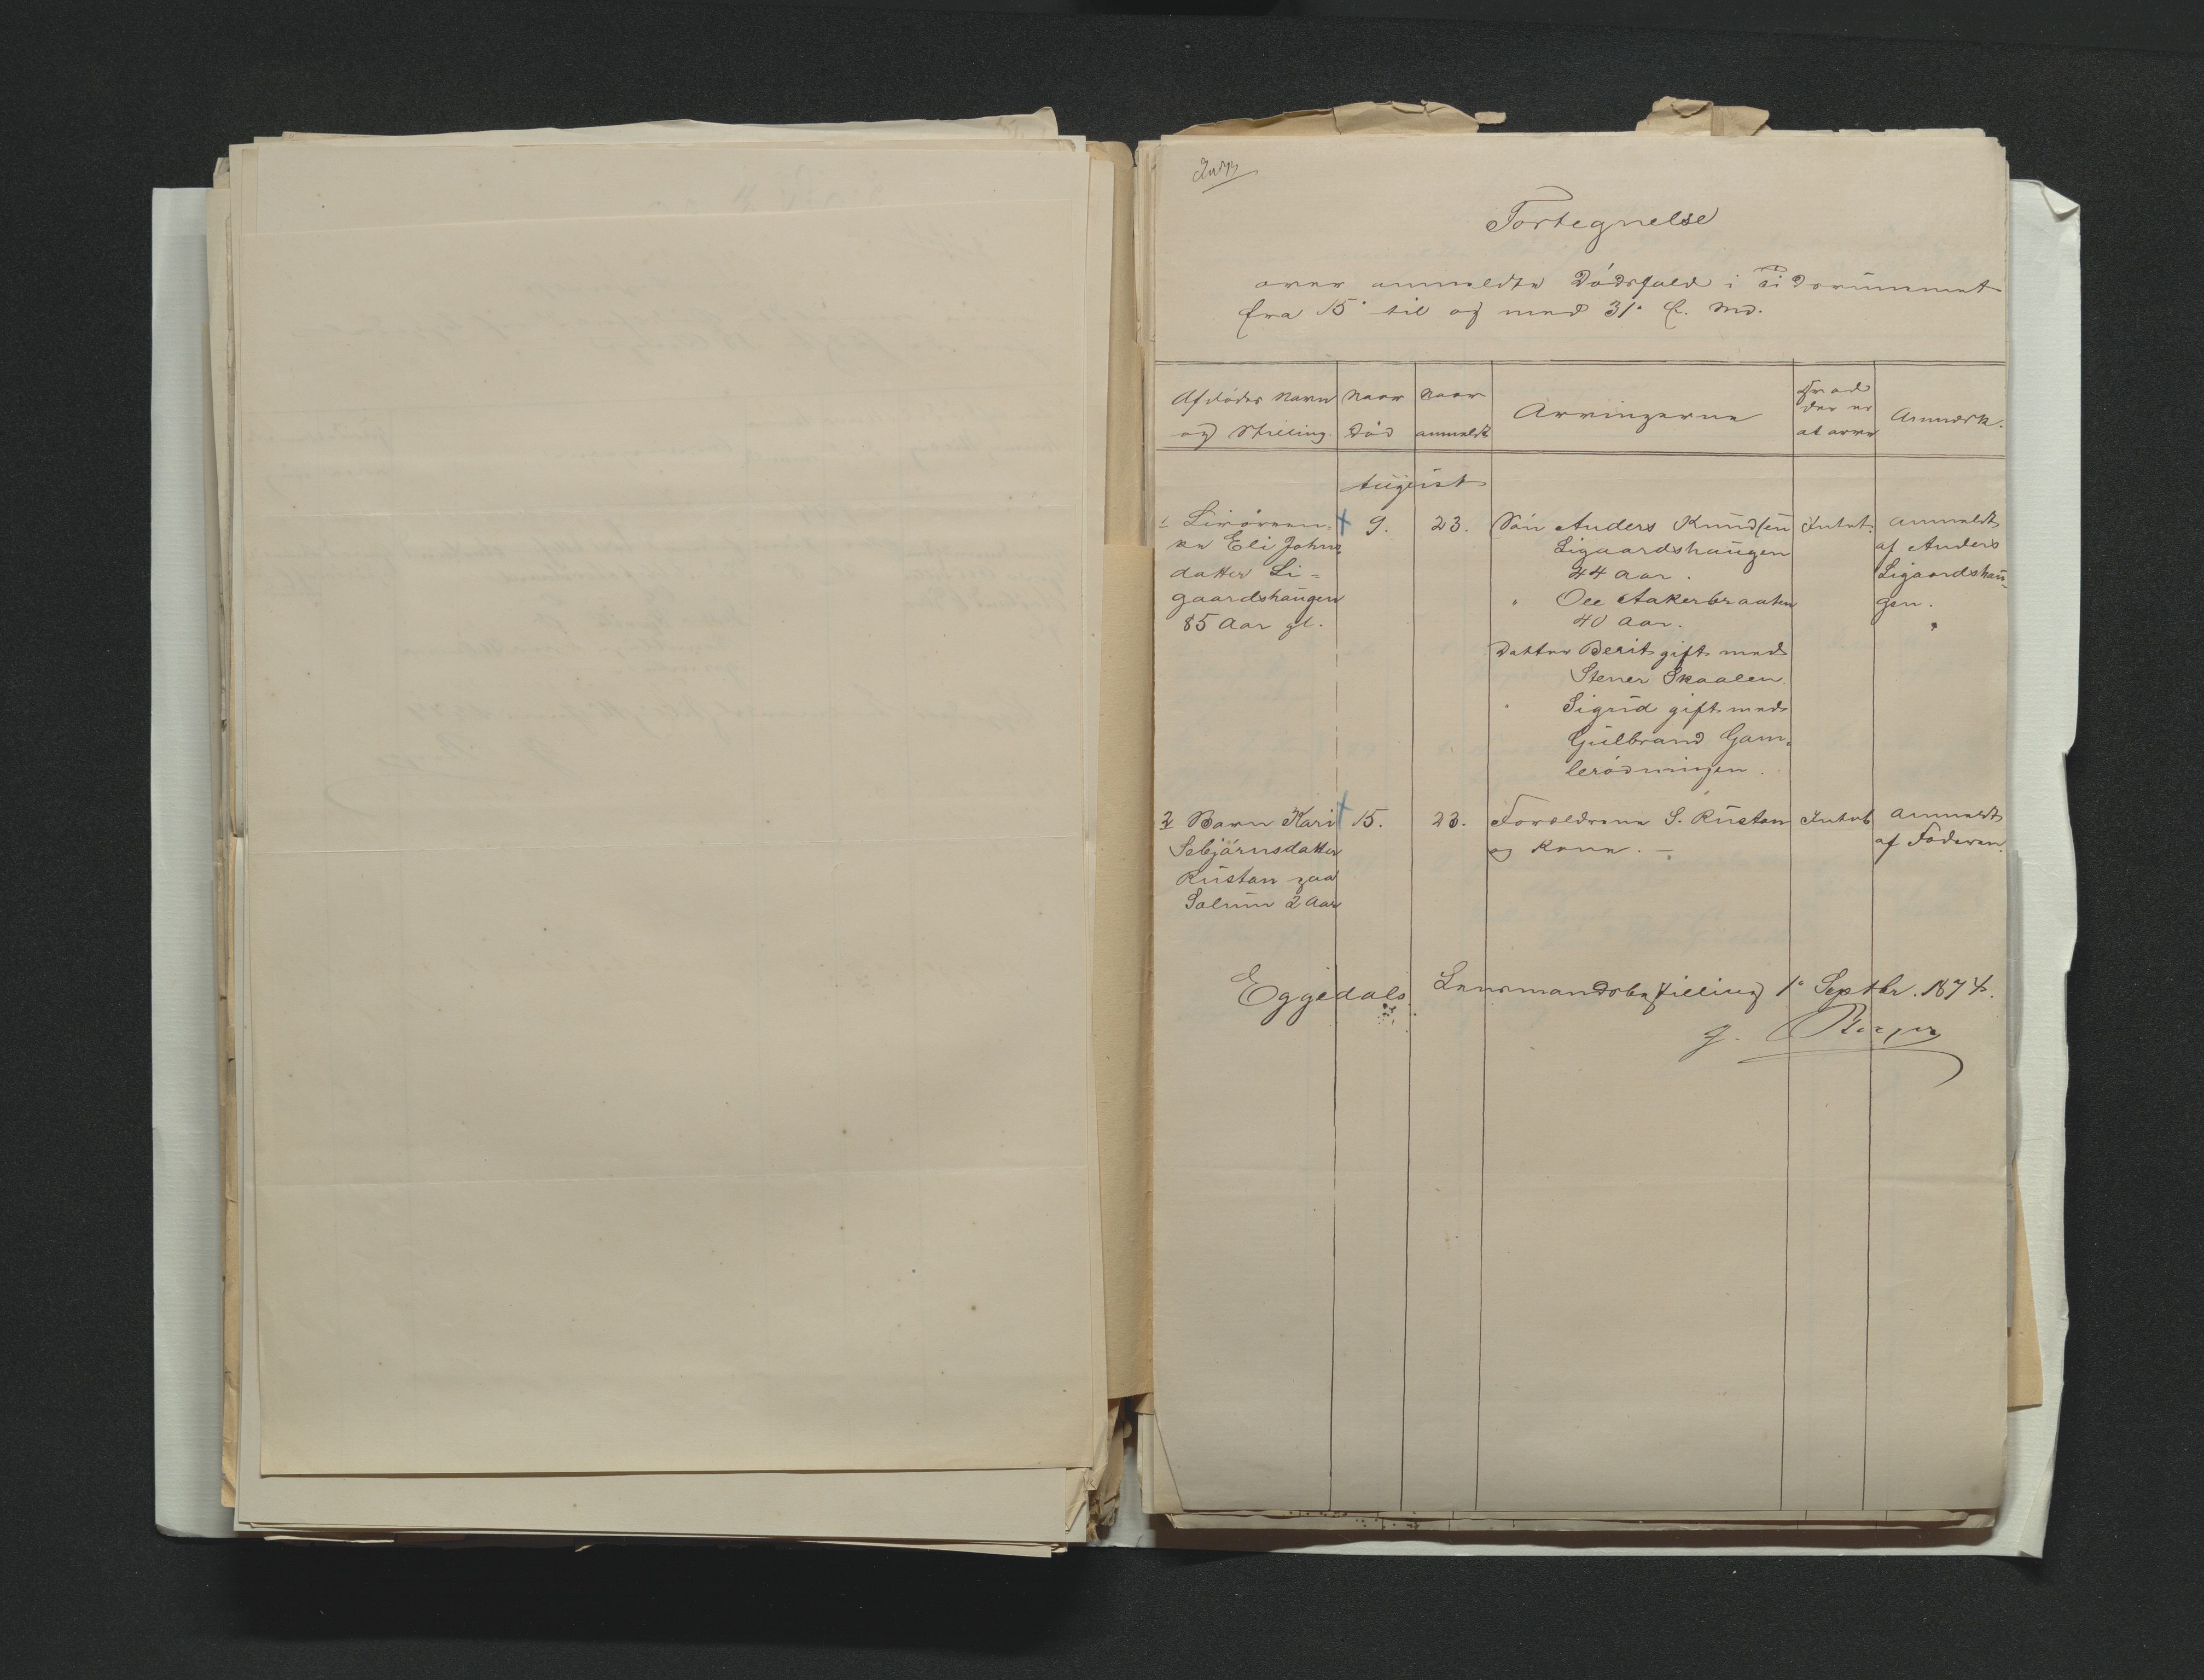 Fortegnelse
over anmeldte Dödsfald i Tidsrummet
fra 15de til og med 31de f. Md.
Afdödes Navn
og Stilling.
Naar
död
Naar
anmeldt
Arvingerne
Hvad
der er
at arve
Anmærk.
August
1 Livören-
ke Eli Johns-
datter Li-
gaardshaugen
85 Aar gl.
9.
23.
Sön Anders Knudsen
Ligaardshaugen
44 Aar.
" Ole Aakerbraaten
40 Aar.
Datter Berit gift med
Stener Skaalen.
" Sigrid gift med
Gulbrand Gam-
lerödningen.
Intet.
Anmeldt
af Anders
Ligaardshau-
gen.
2 Barn Kari
Sebjörnsdatter
Rustan paa
Solum 2 Aar
15.
23.
Forældrene S. Rustan
og Kone. —
Intet
Anmeldt
af Faderen.
Eggedals Lensmandsbestilling 1de Septbr. 1874.